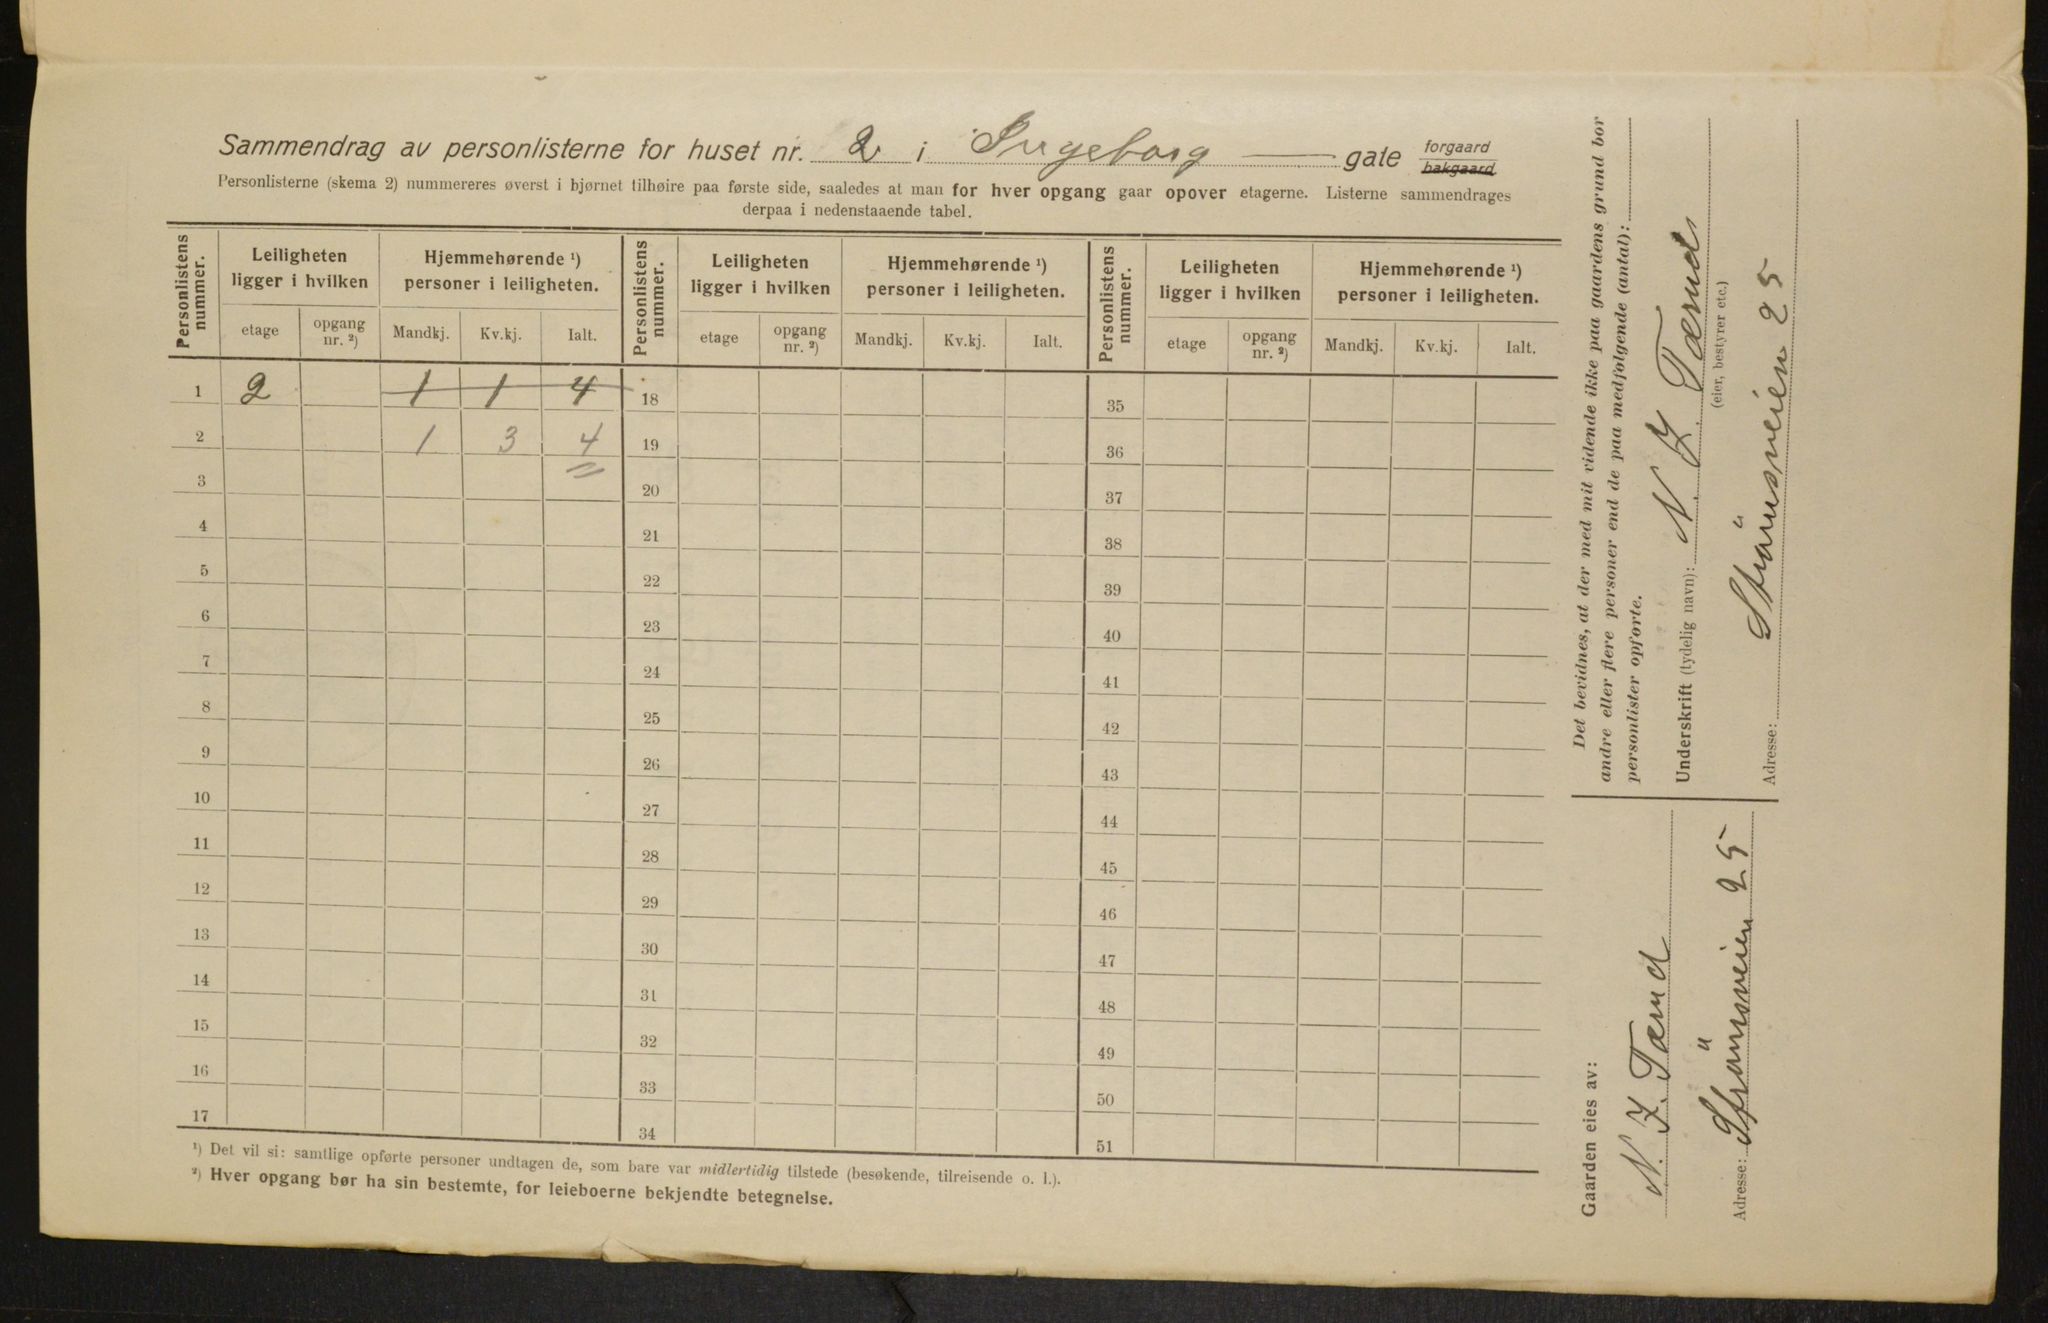 Sammendrag av personlisterne for huset nr. 2 i Ingeborg — gate forgaard
bakgaard
Personlisterne (skema 2) nummereres øverst i bjørnet tilhøire paa første side, saaledes at man for hver opgang gaar opover etagerne. Listerne sammendrages
derpaa i nedenstaaende tabel.
Personlistens nummer. Leiligheten ligger i hvilken Hjemmehørende ¹) personer i leiligheten. Personlistens nummer. Leiligheten ligger i hvilken Hjemmehørende ¹) personer i leiligheten. Personlistens nummer. Leiligheten ligger i hvilken Hjemmehørende ¹) personer i leiligheten.
etage opgang nr. ²) Mandkj. Kv.kj. Ialt. etage opgang nr. ²) Mandkj. Kv.kj. Ialt. etage opgang nr. ²) Mandkj. Kv.kj. Ialt.
1 2 1 1 4 18 35
2 1 3 4 19 36
3 20 37
4 21 38
5 22 39
6 23 40
7 24 41
8 25 42
9 26 43
10 27 44
11 28 45
12 29 46
13 30 47
14 31 48
15 32 49
16 33 50
17 34 51
¹) Det vil si: samtlige opførte personer undtagen de, som bare var midlertidig tilstede (besøkende, tilreisende o. l.).
²) Hver opgang bør ha sin bestemte, for leieboerne bekjendte betegnelse.
Gaarden eies av:
Adresse: 25
Det bevidnes, at der med mit vidende ikke paa gaardens grund bor
andre eller flere personer end de paa medfølgende (antal):
personlister opførte.
Underskrift (tydelig navn):
(eier, bestyrer etc.)
Adresse: 25